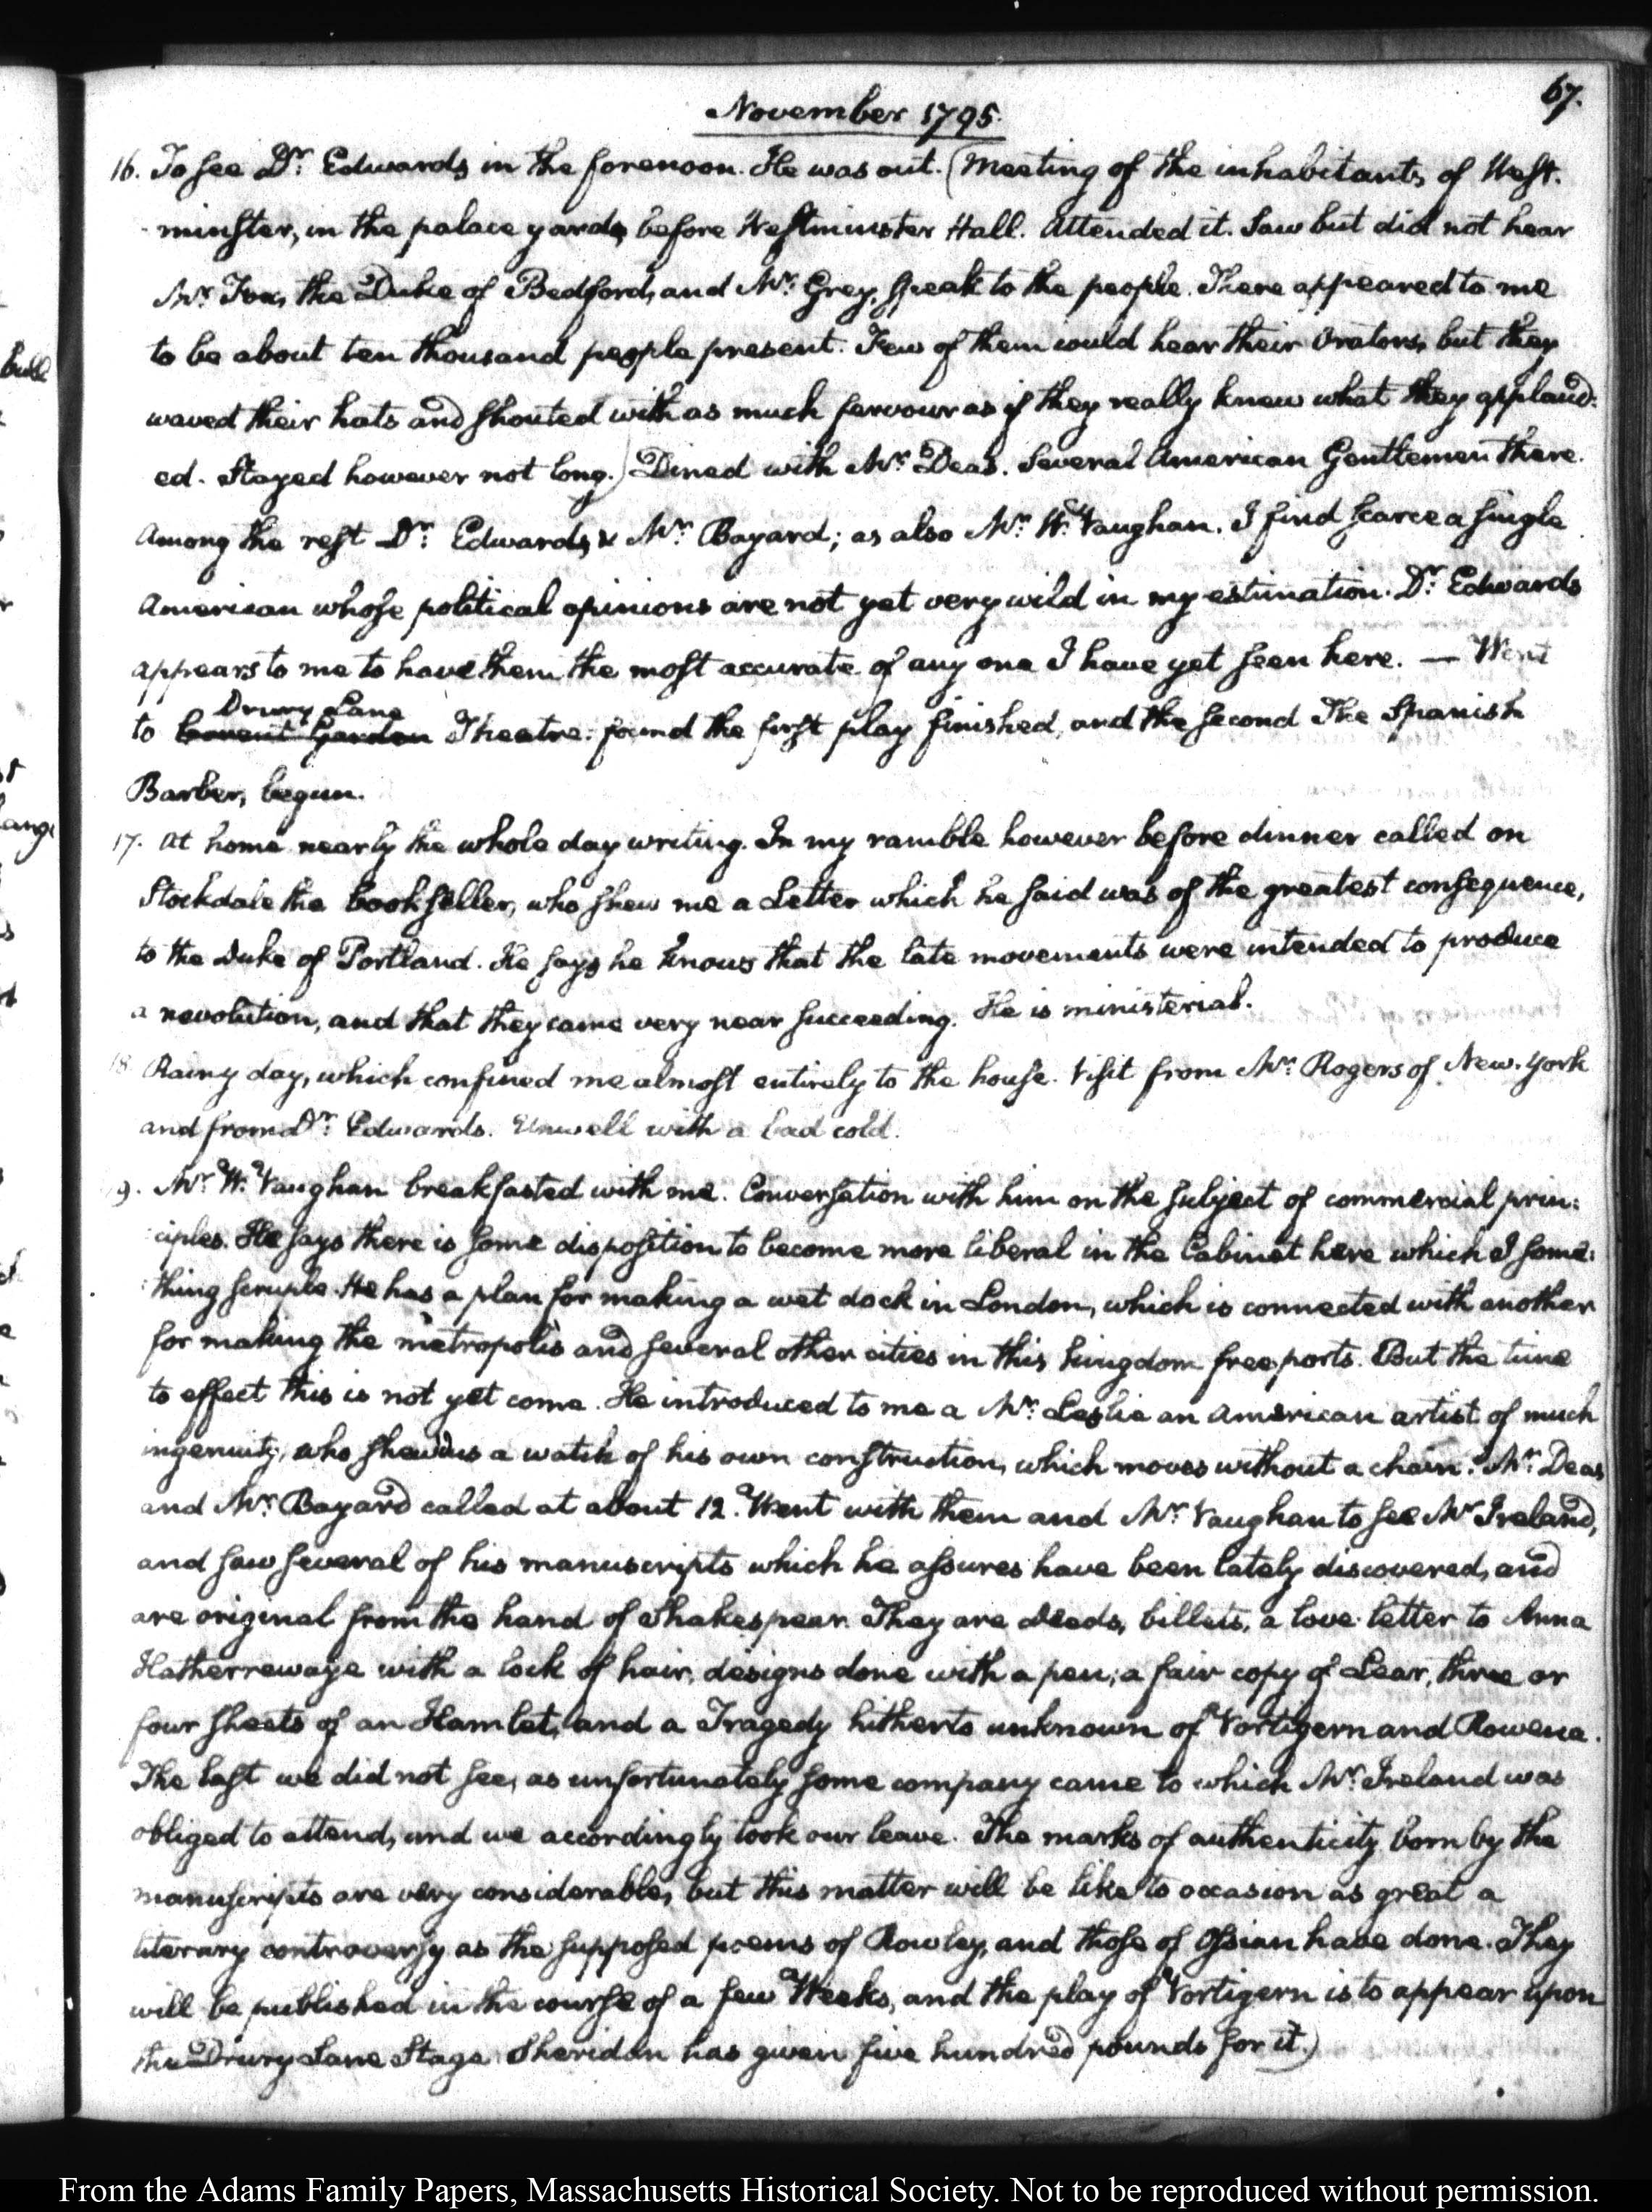 67.
November 1795.
16. To see Dr. Edwards in the forenoon. He was out. (Meeting of the inhabitants of West-
minster, in the palace yards, before Westminster Hall. Attended it. Saw but did not hear
Mr. Fox, the Duke of Bedford, and Mr. Grey, speak to the people. There appeared to me
to be about ten thousand people present. Few of them could hear their Orators, but they
waved their hats and shouted with as much fervour as if they really knew what they applaud:
ed. Stayed however not long.) Dined with Mr. Deas. Several American Gentlemen there.
Among the rest Dr. Edwards, & Mr. Bayard; as also Mr. W. Vaughan. I find scarce a single
American whose political opinions are not yet very wild in my estimation. Dr. Edwards
appears to me to have them the most accurate of any one I have yet seen here. — Went
Drury Lane
to Covent Garden Theatre: found the first play finished, and the second The Spanish
Barber, begun.
17. At home nearly the whole day writing. In my ramble however before dinner called on
Stockdale the bookseller, who shew me a Letter which he said was of the greatest consequence,
to the Duke of Portland. He says he knows that the late movements were intended to produce
a revolution, and that they came very near succeeding. He is ministerial.
18 Rainy day, which confined me almost entirely to the house. Visit from Mr. Rogers of New-York
and from Dr. Edwards. Unwell with a bad cold.
19. Mr. W. Vaughan breakfasted with me. Conversation with him on the subject of commercial prin:
ciples. He says there is some disposition to become more liberal in the Cabinet here which I some:
thing scruple. He has a plan for making a wet dock in London, which is connected with another
for making the metropolis and several other cities in this kingdom free ports. But the time
to effect this is not yet come. He introduced to me a Mr. Leslie an American artist of much
ingenuity, who shew'd us a watch of his own construction, which moves without a chain. Mr. Deas
and Mr. Bayard called at about 12. Went with them and Mr. Vaughan to see Mr Ireland,
and saw several of his manuscripts which he assures have been lately discovered, and
are original from the hand of Shakespear. They are deeds, billets, a love letter to Anna
Hatherrewaye with a lock of hair, designs done with a pen; a fair copy of Lear, three or
four sheets of an Hamlet, and a Tragedy hitherto unknown of Vortigern and Rowena.
The last we did not see, as unfortunately some company came to which Mr. Ireland was
obliged to attend, and we accordingly took our leave. The marks of authenticity born by the
manuscripts are very considerable, but this matter will be like to occasion as great a
literary controversy as the supposed poems of Rowley, and those of Ossian have done. They
will be published in the course of a few Weeks, and the play of Vortigern is to appear upon
the Drury Lane Stage. Sheridan has given five hundred pounds for it.)
From the Adams Family Papers, Massachusetts Historical Society. Not to be reproduced without permission.